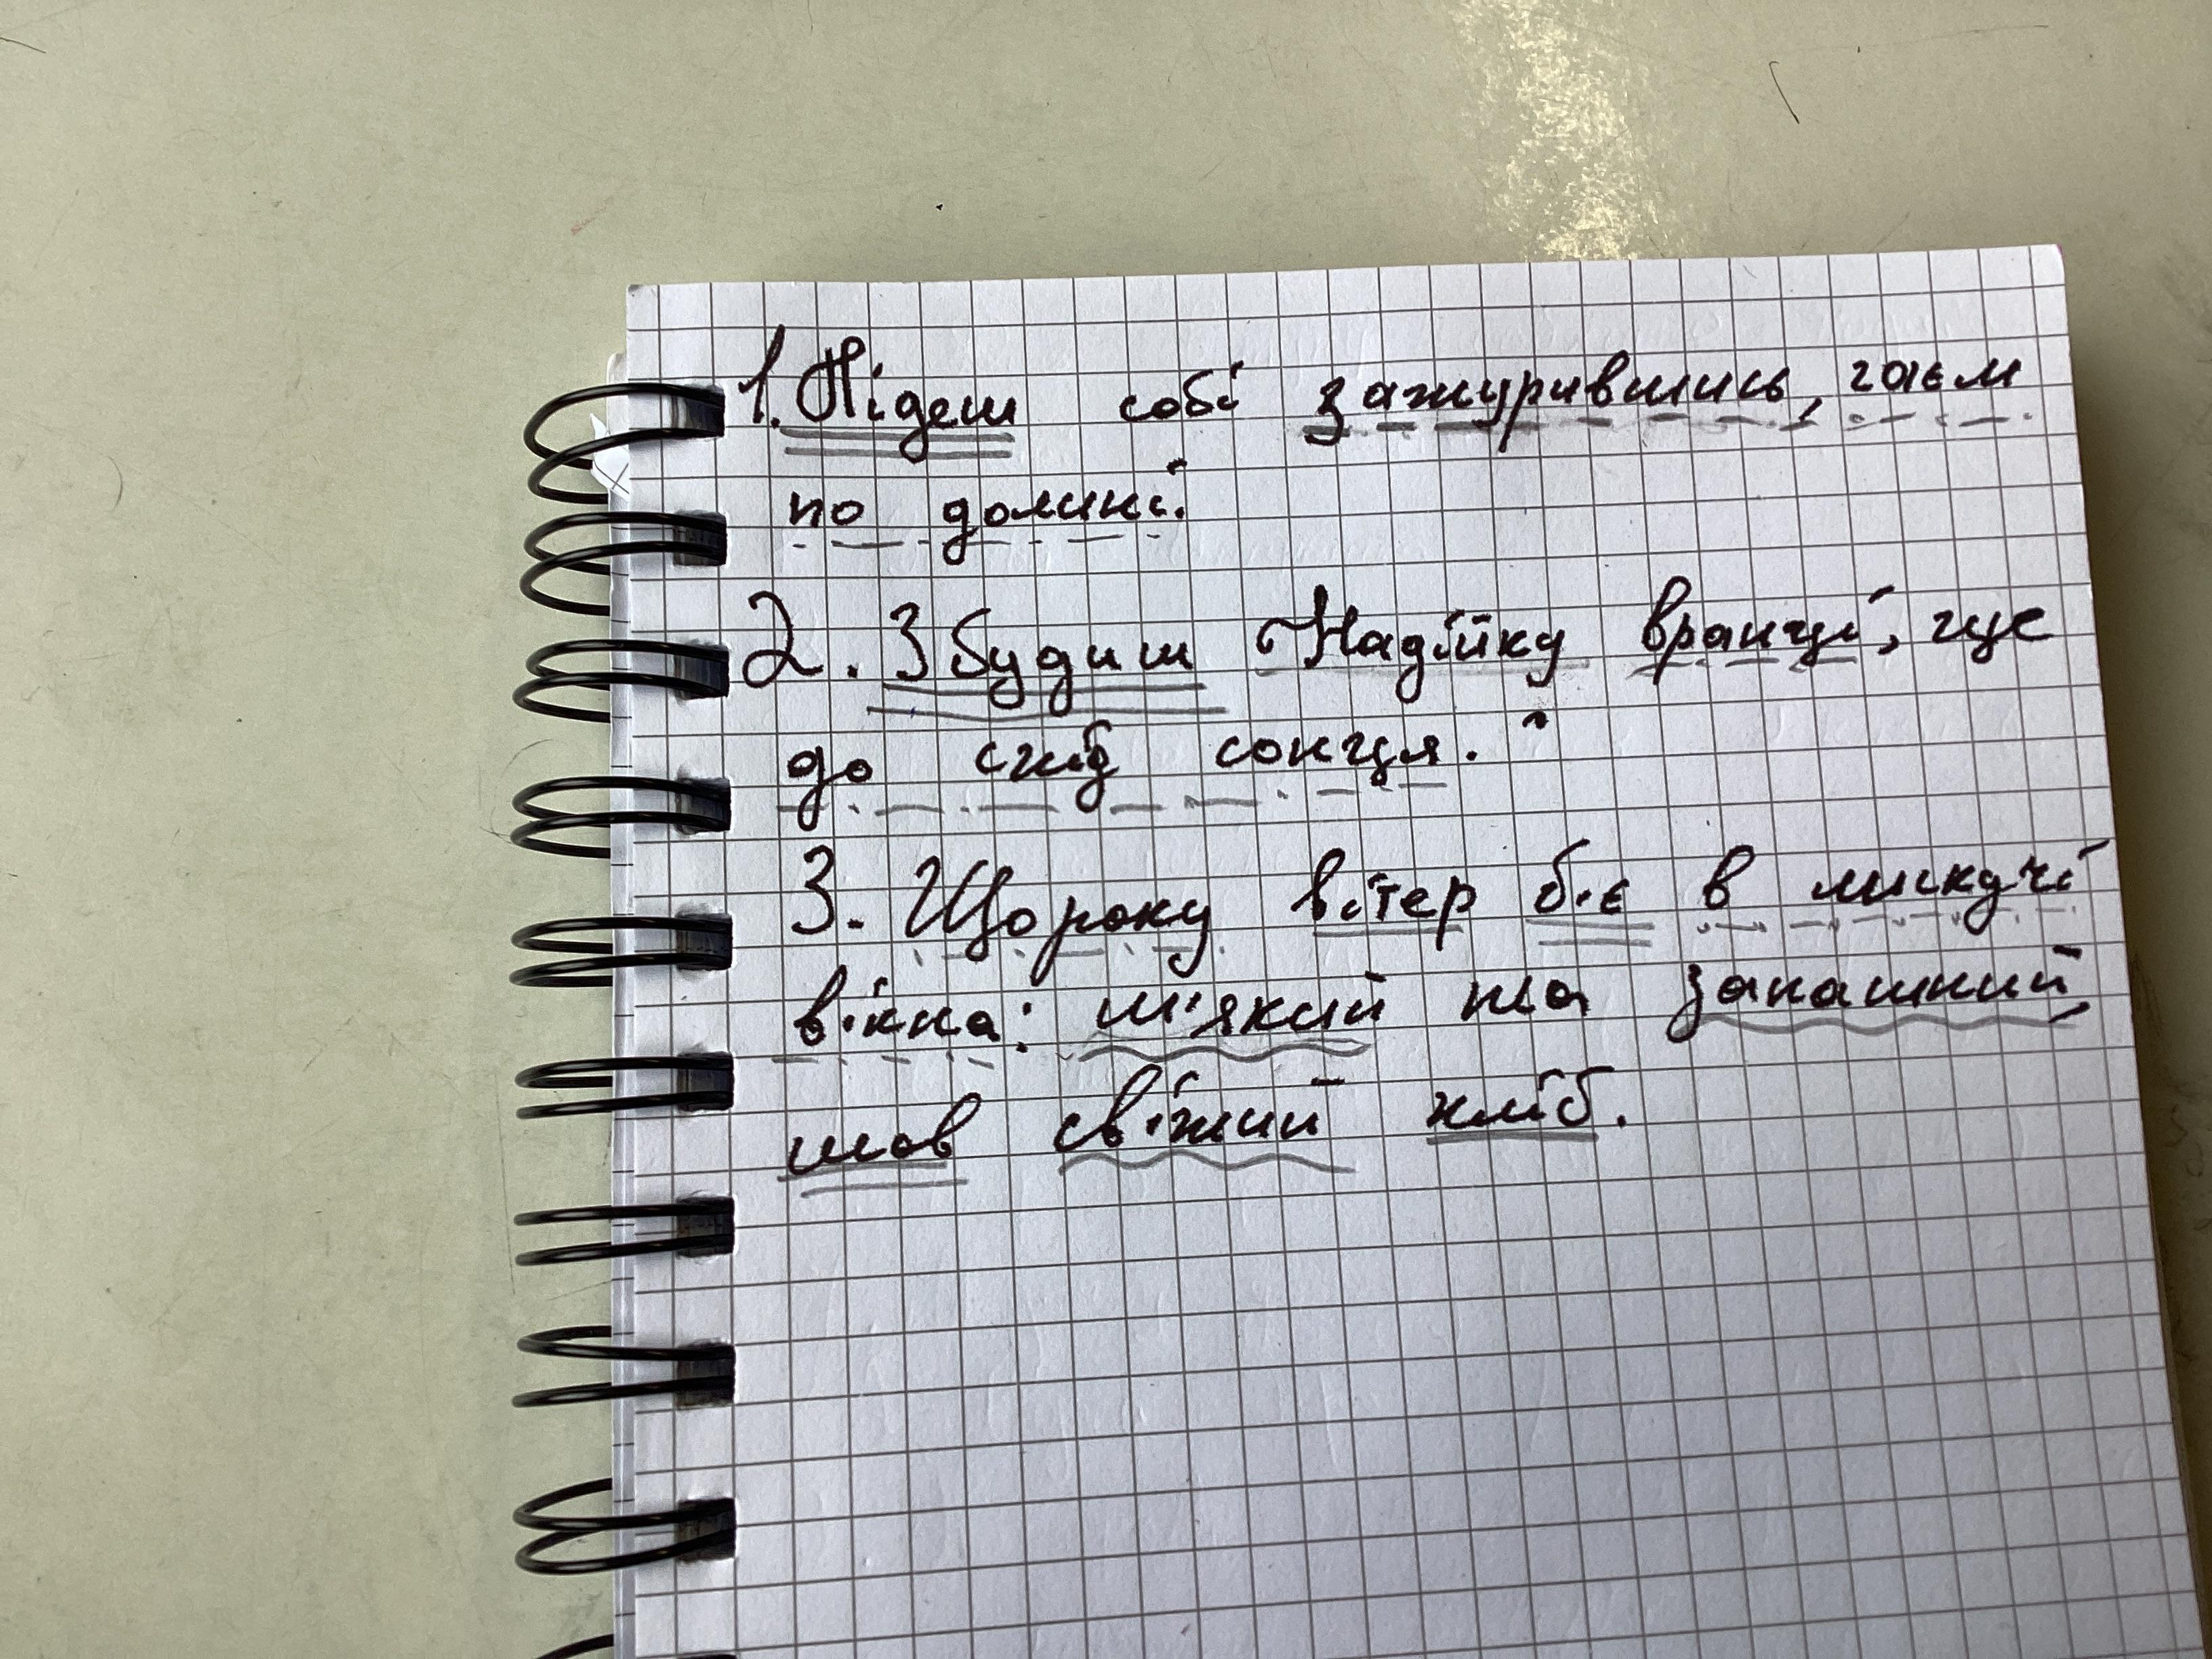 1. Підеш собі зажурившись, гаєм
по долині.
2. Збудиш Надійку вранці, ще
до схід сонця.
3. Щороку вітер б'є в
вікна: м'який та запашний,
мов свіжий хліб.